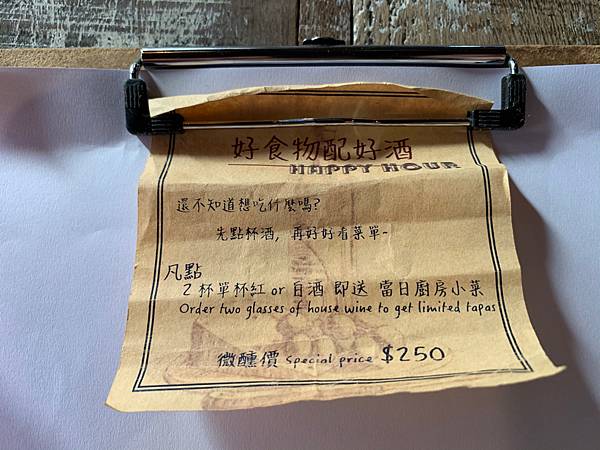 好食物配好酒
HAPPY HOUR
還不知道想吃什麼嗎?
先點杯酒, 再好好看菜單~
凡點
2 杯單杯紅 or 白酒 即送 當日廚房小菜
Order two glasses of house wine to get limited tapas
微醺價 Special price $250